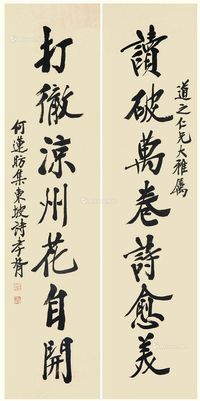 道之仁兄大雅属
讀破萬卷詩愈美
打徹涼州花自開
何蓮舫集東坡詩 孝胥